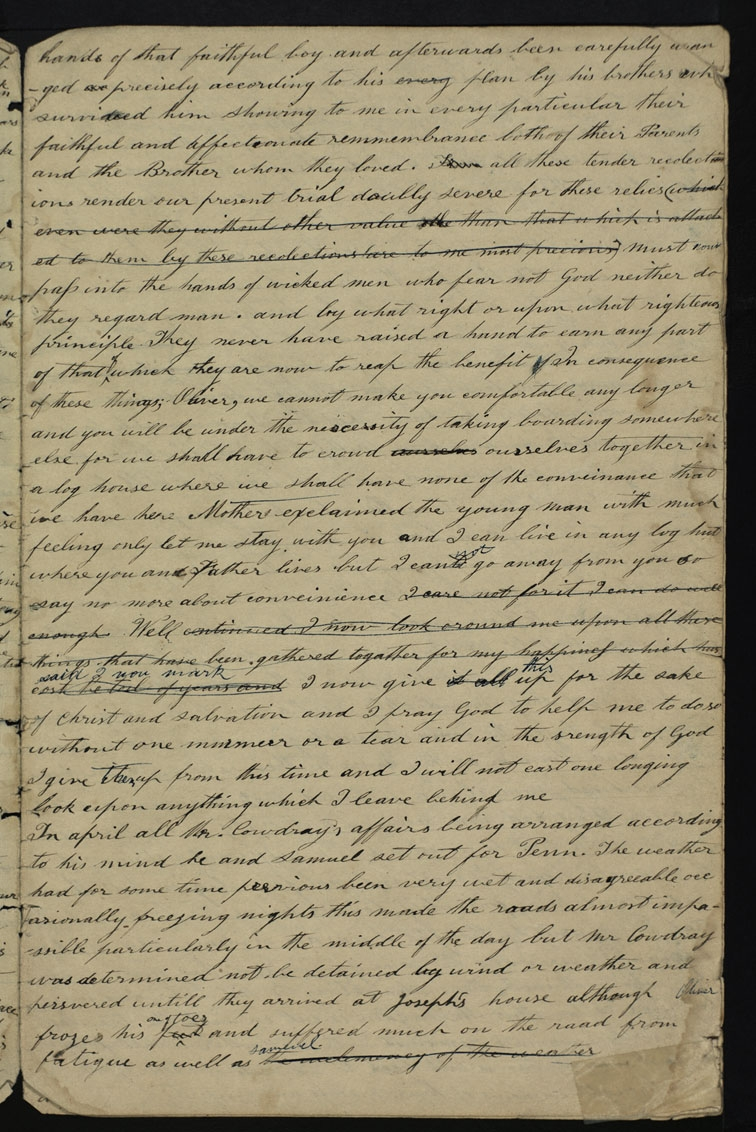 hands of that faithful boy and afterwards been carefully arran
-ged as precisely according to his every plan by his brothers who
survived him showing to me in every particular their
faithful and affectionate remmembrance both of their Parents
and the Brother whom they loved. all these tender recolect
ions render our present trial doubly severe for these relics (which
even were they without other value than that which is attach
ed to them by these recolections are to me most precious) must now
pass into the hands of wicked men who fear not God neither do
they regard man. and by what right or upon what righteous
principle They never have raised a hand to earn any part
of that which they are now to reap the benefit of In consequence
of these things; Oliver, we cannot make you comfortable any longer
and you will be under the neccersity of taking boarding somewhere
else for we shall have to crowd ourselves ourselves together in
a log house where we shall have none of the conveinance that
we have here Mother exclaimed the young man with much
feeling only let me stay with you and I can live in any log hut
where you and Father lives but I cannot go away from you so
say no more about conveinience I care not for it I can do well
enough Well continued I now look around me upon all these
things that have been gathered togather for my happiness which has
said I you mark this
cost be toil of years and I now give it all up for the sake
of Christ and salvation and I pray God to help me to do so
without one murmeer or a tear and in the srength of God
I give them up from this time and I will not cast one longing
look upon anything which I leave behind me
In april all Mr. Cowdray's affairs being arranged according
to his mind he and Samuel set out for Penn. The weather
had for some time pervious been very wet and disagreeable occ
asionally freezing nights this made the roads almost impa-
-ssible particularly in the middle of the day but Mr Cowdray
was determined not be detained by wind or weather and
persvered untill they arrived at Joseph's house although Oliver
froze his feet and suffered much on the road from
fatigue as well as samuel the inclemency of the weather